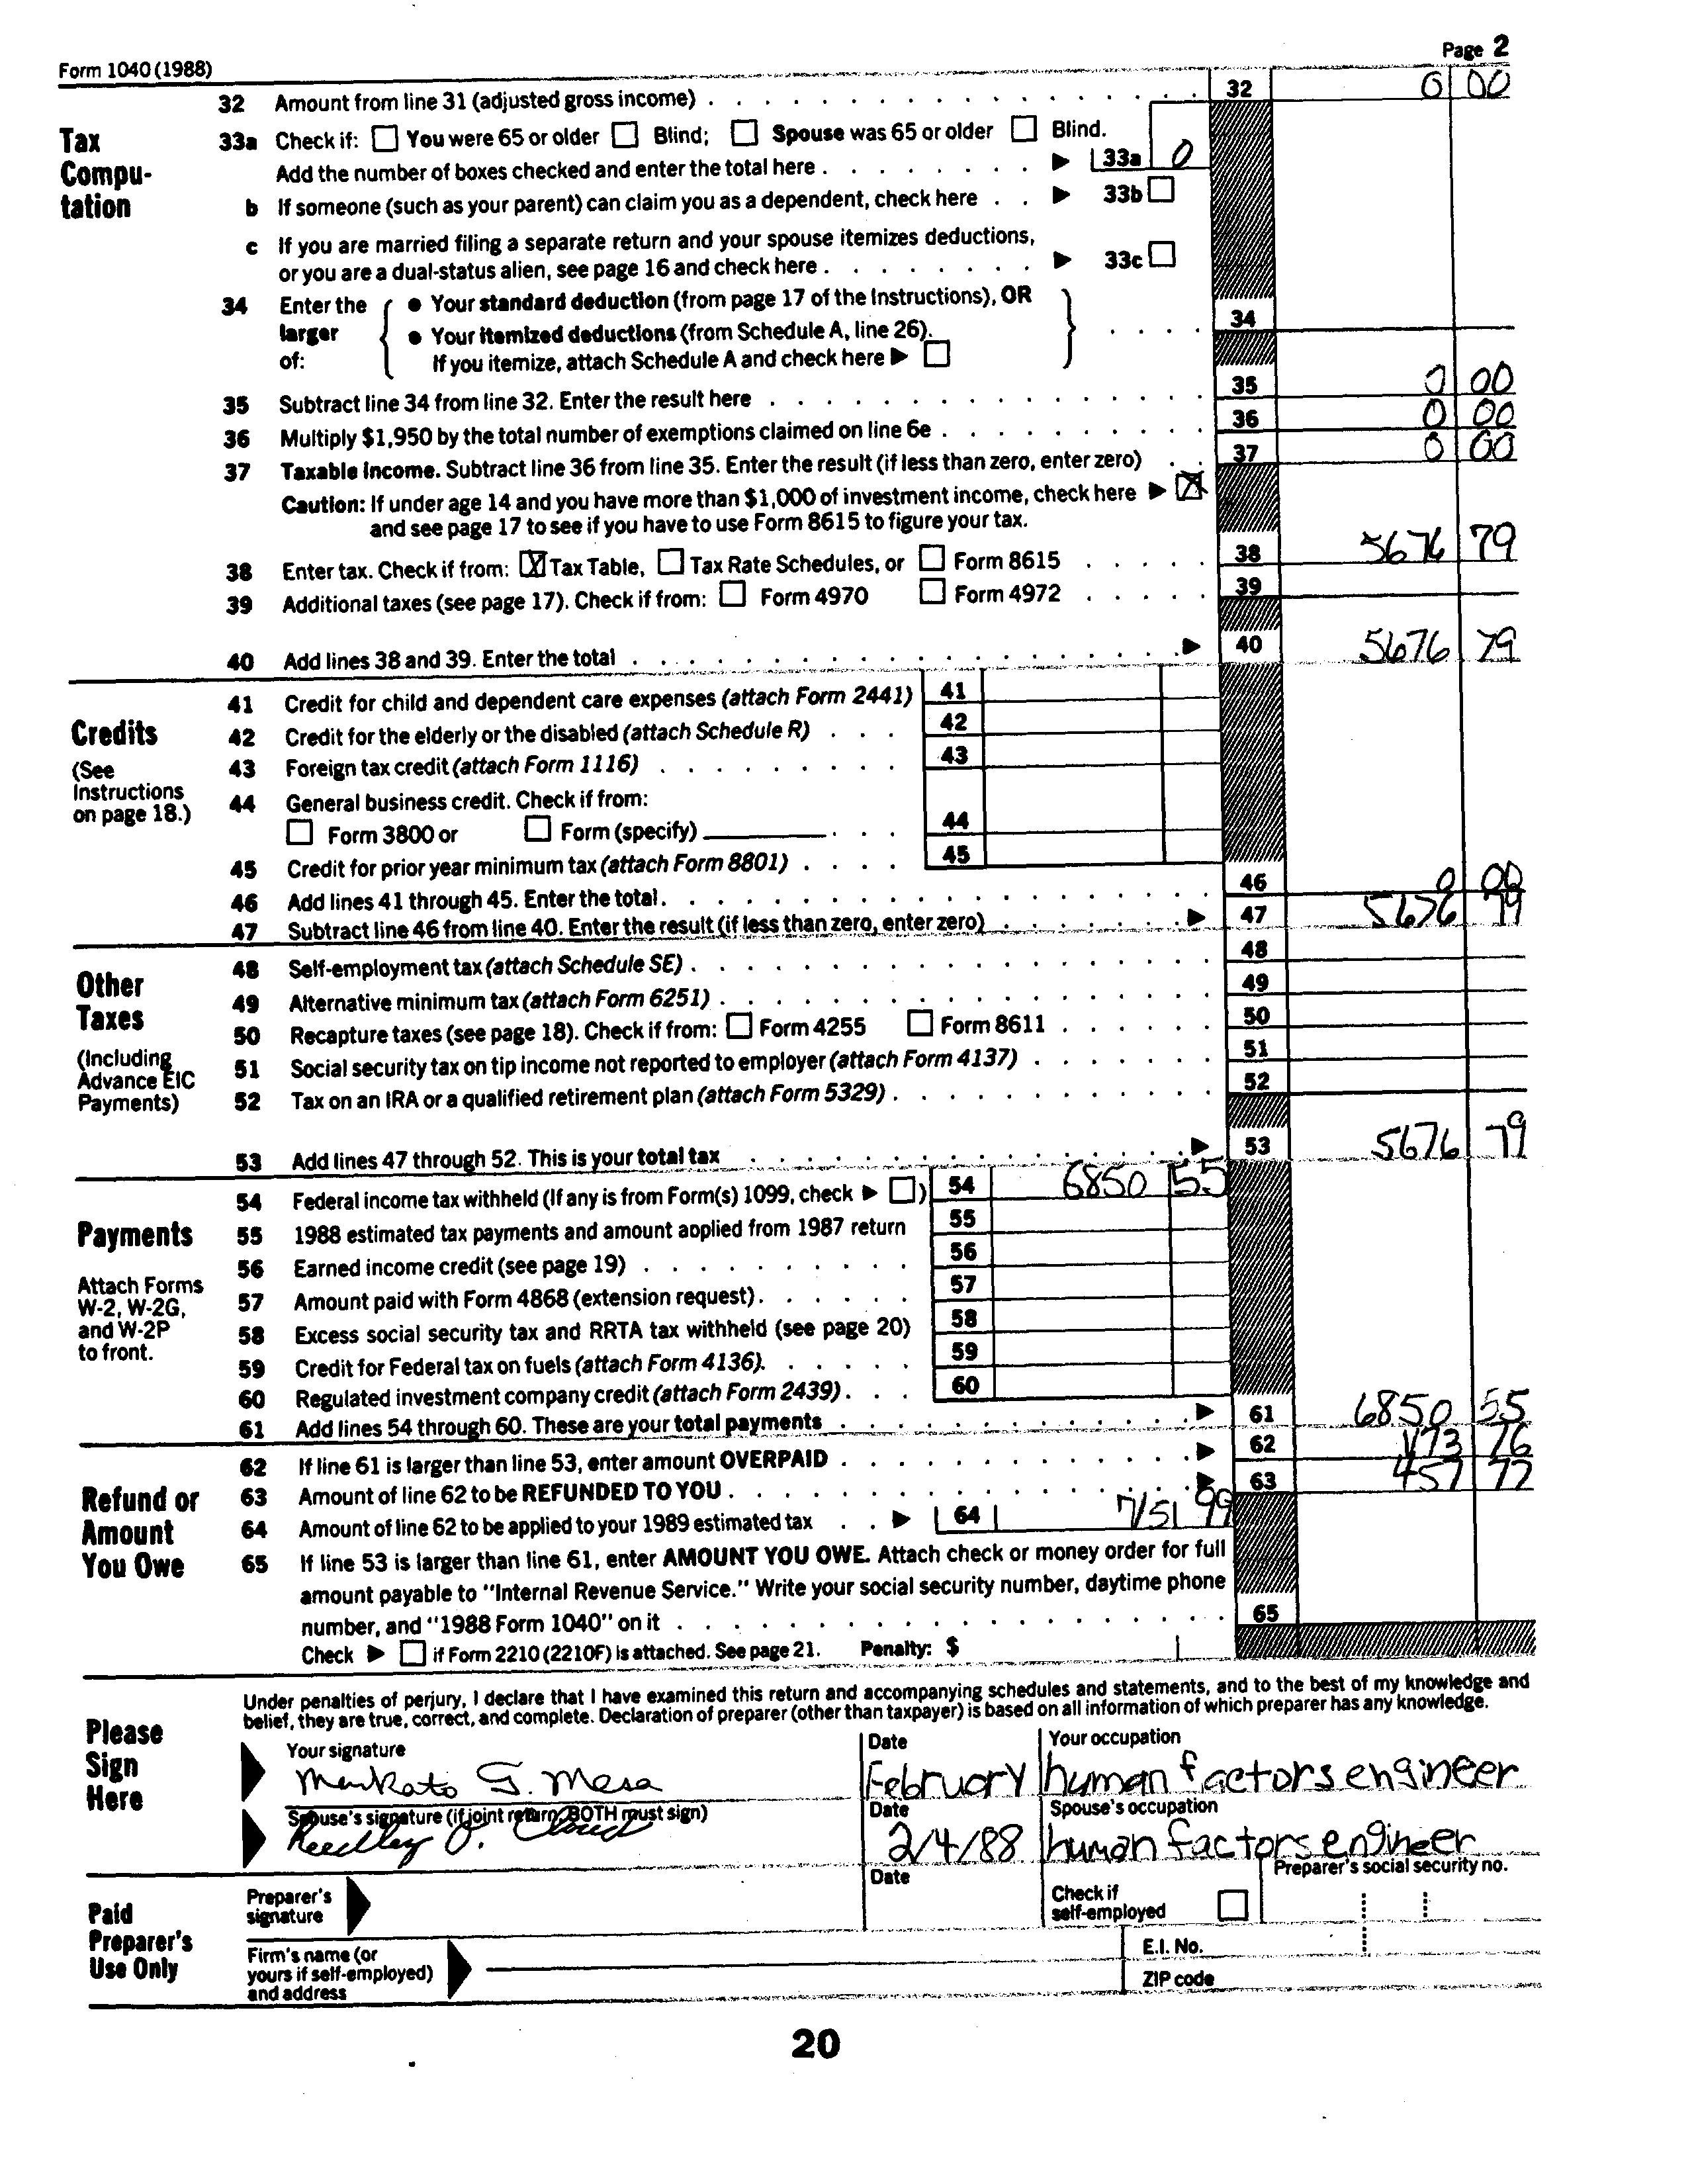 Form 1040 (1988) Page 2
32 Amount from line 31 (adjusted gross income) 32 0 00
Tax Computation
33a Check if: You were 65 or older Blind; Spouse was 65 or older Blind.
Add the number of boxes checked and enter the total here 33a 0
b If someone (such as your parent) can claim you as a dependent, check here 33b
c If you are married filing a separate return and your spouse itemizes deductions,
or you are a dual-status alien, see page 16 and check here 33c
34 Enter the larger of: { • Your standard deduction (from page 17 of the Instructions), OR
• Your itemized deductions (from Schedule A, line 26).
If you itemize, attach Schedule A and check here } 34
35 Subtract line 34 from line 32. Enter the result here 35 0 00
36 Multiply $1,950 by the total number of exemptions claimed on line 6e 36 0 00
37 Taxable income. Subtract line 36 from line 35. Enter the result (if less than zero, enter zero) 37 0 00
Caution: If under age 14 and you have more than $1,000 of investment income, check here X
and see page 17 to see if you have to use Form 8615 to figure your tax.
38 Enter tax. Check if from: X Tax Table, Tax Rate Schedules, or Form 8615 38 5676 79
39 Additional taxes (see page 17). Check if from: Form 4970 Form 4972 39
40 Add lines 38 and 39. Enter the total 40 5676 79
Credits
(See Instructions on page 18.)
41 Credit for child and dependent care expenses (attach Form 2441) 41
42 Credit for the elderly or the disabled (attach Schedule R) 42
43 Foreign tax credit (attach Form 1116) 43
44 General business credit. Check if from:
Form 3800 or Form (specify) 44
45 Credit for prior year minimum tax (attach Form 8801) 45
46 Add lines 41 through 45. Enter the total. 46 0 00
47 Subtract line 46 from line 40. Enter the result (if less than zero, enter zero) 47 5676 79
Other Taxes
(Including Advance EIC Payments)
48 Self-employment tax (attach Schedule SE) 48
49 Alternative minimum tax (attach Form 6251) 49
50 Recapture taxes (see page 18). Check if from: Form 4255 Form 8611 50
51 Social security tax on tip income not reported to employer (attach Form 4137) 51
52 Tax on an IRA or a qualified retirement plan (attach Form 5329) 52
53 Add lines 47 through 52. This is your total tax 53 5676 79
Payments
Attach Forms W-2, W-2G, and W-2P to front.
54 Federal income tax withheld (If any is from Form(s) 1099, check ) 54 6850 55
55 1988 estimated tax payments and amount applied from 1987 return 55
56 Earned income credit (see page 19) 56
57 Amount paid with Form 4868 (extension request) 57
58 Excess social security tax and RRTA tax withheld (see page 20) 58
59 Credit for Federal tax on fuels (attach Form 4136). 59
60 Regulated investment company credit (attach Form 2439) 60
61 Add lines 54 through 60. These are your total payments 61 6850 55
Refund or Amount You Owe
62 If line 61 is larger than line 53, enter amount OVERPAID 62 1173 76
63 Amount of line 62 to be REFUNDED TO YOU 63 457 77
64 Amount of line 62 to be applied to your 1989 estimated tax 64 7151 99
65 If line 53 is larger than line 61, enter AMOUNT YOU OWE. Attach check or money order for full
amount payable to "Internal Revenue Service." Write your social security number, daytime phone
number, and "1988 Form 1040" on it 65
Check if Form 2210 (2210F) is attached. See page 21. Penalty: $
Please Sign Here
Under penalties of perjury, I declare that I have examined this return and accompanying schedules and statements, and to the best of my knowledge and
belief, they are true, correct, and complete. Declaration of preparer (other than taxpayer) is based on all information of which preparer has any knowledge.
Your signature Date Your occupation
Mankato G. Mesa February human factors engineer
Spouse's signature (if joint return, BOTH must sign) Date Spouse's occupation
Reedley O. Cloud 2/4/88 human factors engineer
Paid Preparer's Use Only
Preparer's signature Date Check if self-employed Preparer's social security no.
Firm's name (or yours if self-employed) and address
E.I. No.
ZIP code
20